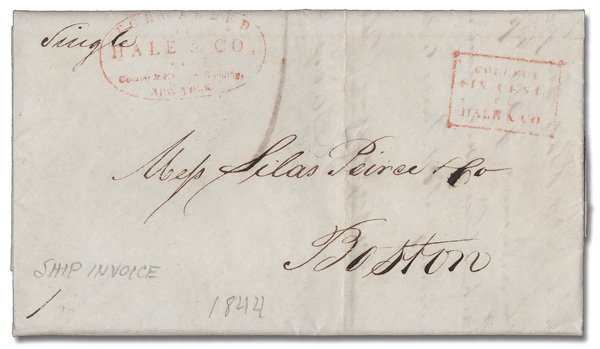 Single
FORWARDED
HALE & CO,
Courier &
NEW YORK
COLLECT
SIX CENT
HALE & CO
Mess Silas Peirce & Co
Boston
SHIP INVOICE
1844